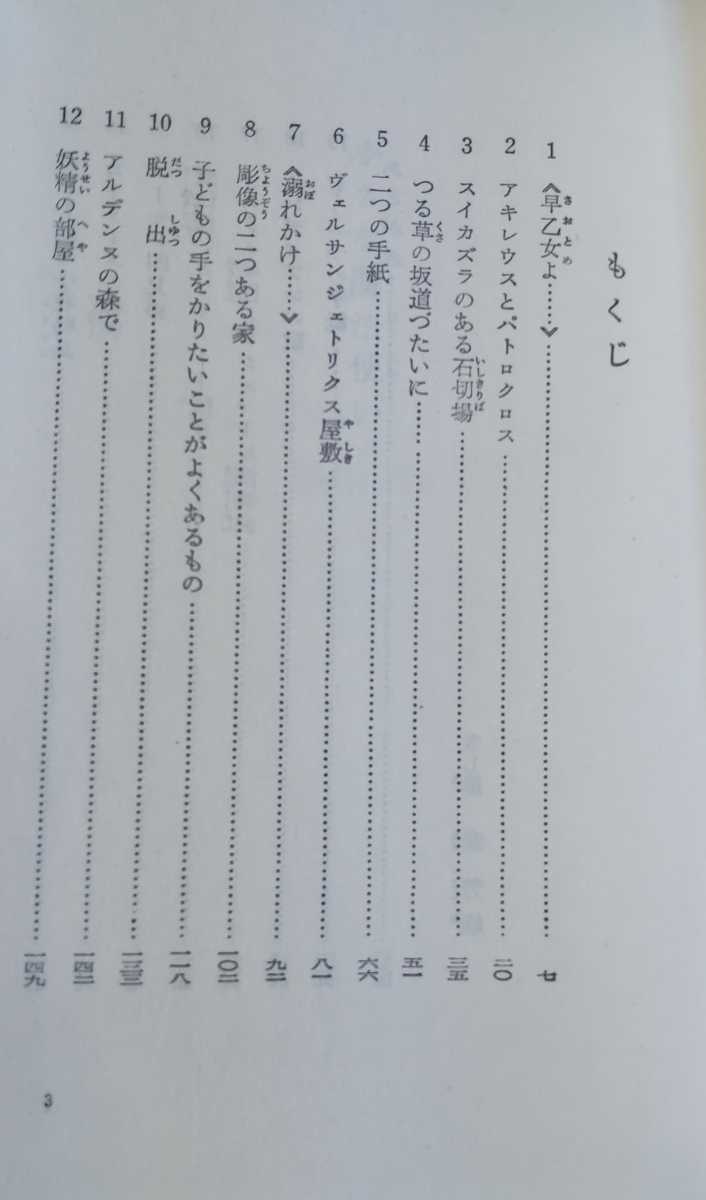 もくじ
さおとめ
1 《早乙女よ……》……七
2 アキレウスとパトロクロス……二〇
いしきりば
3 スイカズラのある石切場……三五
くさ
4 つる草の坂道づたいに……五一
5 二つの手紙……六六
やしき
6 ヴェルサンジェトリクス屋敷……八一
おぼ
7 《溺れかけ……》……九二
ちょうぞう
8 彫像の二つある家……一〇二
9 子どもの手をかりたいことがよくあるもの……一一八
だっしゅつ
10 脱出……一三三
11 アルデンヌの森で……一四二
ようせい へや
12 妖精の部屋……一四九
3